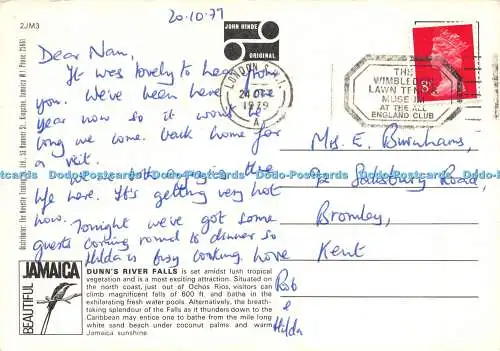 2JM3
20.10.79
JOHN HINDE
ORIGINAL
Dear Nan,
It was lovely to hear from
you. We've been here one
year now so it won't be
long we come back home for
a visit.
We both enjoy the
life here. It's getting very hot
now. Tonight we've got some
guests coming round to dinner so
Hilda is busy cooking. Love
Rob
&
Hilda
LONDON
24 OCT
1979
A
THE
WIMBLEDON
LAWN TENNIS
MUSEUM
AT THE ALL
ENGLAND CLUB
8P
Mrs. E. Burnhams,
92 Salisbury Road,
Bromley,
Kent
Dodo-Postcards Dodo-Postcards Dodo-Postcards Dodo-Postcards Dodo-Postcards
BEAUTIFUL
JAMAICA
DUNN'S RIVER FALLS is set amidst lush tropical
vegetation and is a most exciting attraction. Situated on
the north coast, just out of Ochos Rios, visitors can
climb magnificent falls of 600 ft. and bathe in the
exhilarating fresh water pools. Alternatively, the breath-
taking splendour of the Falls as it thunders down to the
Caribbean may entice one to bathe from the mile long
white sand beach under coconut palms and warm
Jamaica sunshine.